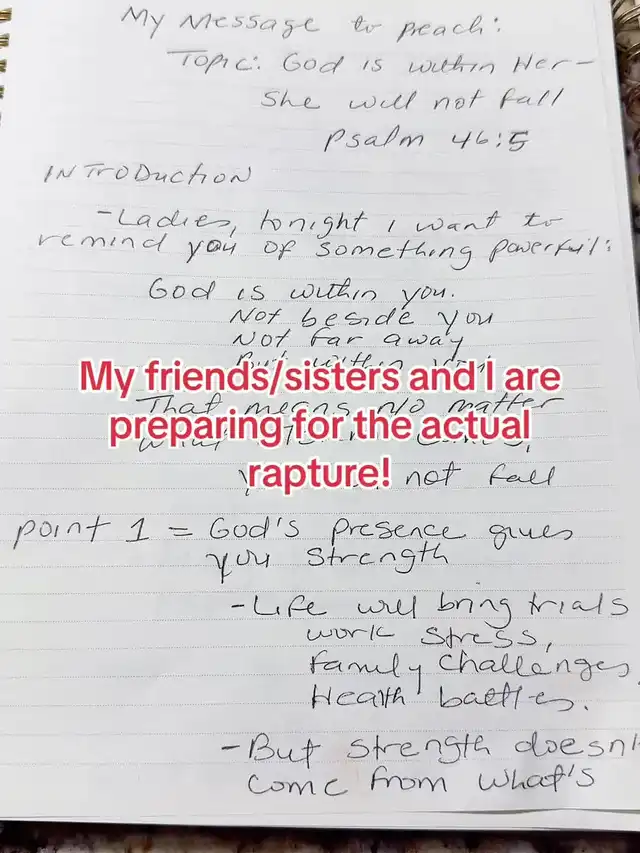 My Message to preach:
Topic: God is within Her—
She will not fall
Psalm 46:5
INTRODUCTION
-Ladies, tonight I want to
remind you of something powerful:
God is within you.
Not beside you
Not far away
My friends/sisters and I are
That means no matter
preparing for the actual
rapture!
not fall
point 1 = God's presence gives
you strength
-Life will bring trials
work stress,
family challenges,
Health battles.
-But strength doesn't
come from what's